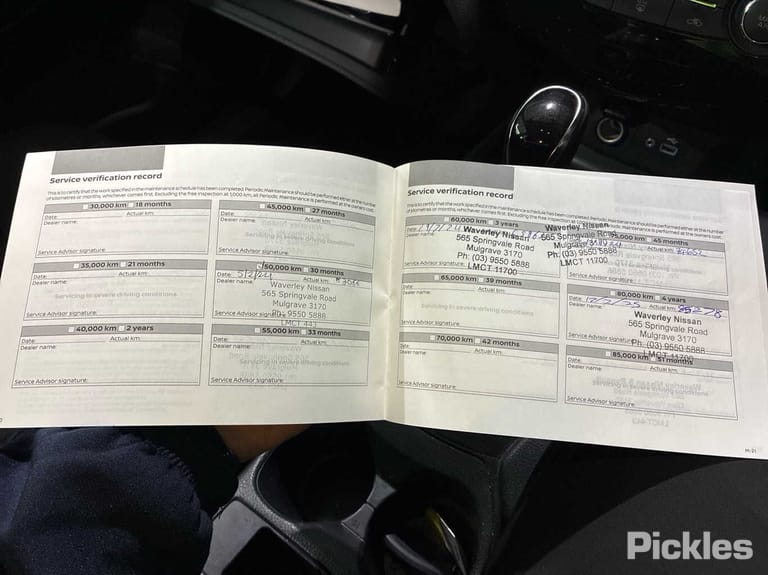 Service verification record
This is to certify that the work specified in the maintenance schedule has been completed. Periodic Maintenance should be performed either at the number
of kilometres or months, whichever comes first. Excluding the free inspection at 1,000 km, all Periodic Maintenance is performed at the owners cost.
30,000 km 18 months
Date: Actual km:
Dealer name:
Service Advisor signature:
35,000 km 21 months
Date: Actual km:
Dealer name:
Servicing in severe driving conditions
Service Advisor signature:
40,000 km 2 years
Date: Actual km:
Dealer name:
Service Advisor signature:
45,000 km 27 months
Date: Actual km:
Dealer name:
Servicing in severe driving conditions
Service Advisor signature:
50,000 km 30 months
Date: 5/2/24 Actual km:
Dealer name:
Waverley Nissan
565 Springvale Road
Mulgrave 3170
Ph: (03) 9550 5888
LMCT 443
55,000 km 33 months
Date: Actual km:
Dealer name:
Servicing in severe driving conditions
Service Advisor signature:
Service verification record
This is to certify that the work specified in the maintenance schedule has been completed. Periodic Maintenance should be performed either at the number
of kilometres or months, whichever comes first. Excluding the free inspection at 1,000 km, all Periodic Maintenance is performed at the owners cost.
60,000 km 3 years
Date:
Dealer name:
Waverley Nissan
565 Springvale Road
Mulgrave 3170
Ph: (03) 9550 5888
LMCT 11700
Service Advisor signature:
65,000 km 39 months
Date: Actual km:
Dealer name:
Servicing in severe driving conditions
Service Advisor signature:
70,000 km 42 months
Date: Actual km:
Dealer name:
Service Advisor signature:
Waverley Nissan
565 Springvale Road
Mulgrave 3170
Ph: (03) 9550 5888
LMCT 11700
45 months
Actual km:
Service Advisor signature:
80,000 km 4 years
Date: Actual km:
Dealer name:
Waverley Nissan
565 Springvale Road
Mulgrave 3170
Ph: (03) 9550 5888
LMCT 11700
Service Advisor signature:
85,000 km 51 months
Date: Actual km:
Dealer name:
Servicing in severe driving conditions
Service Advisor signature:
M-21
Pickles